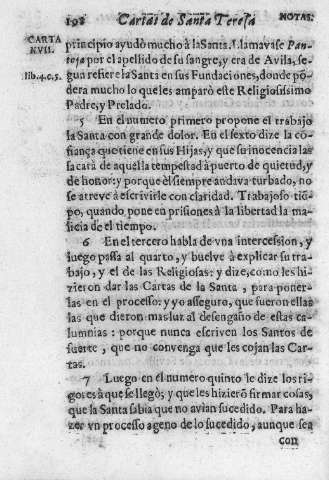 198 Cartas de Santa Teresa NOTAS.
CARTA
XVII.
lib.4.c.5.
principio ayudò mucho à la Santa. Llamavase Pan-
toja por el apellido de su sangre, y era de Avila, se-
gun refiere la Santa en sus Fundaciones, donde põ-
dera mucho lo que les amparò este Religiosissimo
Padre, y Prelado.
5 En el numero primero propone el trabajo
la Santa con grande dolor. En el sexto dize la cõ-
fiança que tiene en sus Hijas, y que su inocencia las
sacarà de aquella tempestad à puerto de quietud, y
de honor: y porque èl siempre andava turbado, no
se atreve à escrivirle con claridad. Trabajoso tiẽ-
po, quando pone en prisiones à la libertad la ma-
licia de el tiempo.
6 En el tercero habla de vna intercession, y
luego passa al quarto, y buelve à explicar su tra-
bajo, y el de las Religiosas: y dize, como les hi-
zieron dar las Cartas de la Santa, para poner-
las en el processo: y yo asseguro, que fueron ellas
las que dieron mas luz al desengaño de estas ca-
lumnias: porque nunca escriven los Santos de
suerte, que no convenga que les cojan las Car-
tas.
7 Luego en el numero quinto le dize los ri-
gores à que se llegò; y que les hizierõ firmar cosas,
que la Santa sabia que no avian sucedido. Para ha-
zer vn processo ageno de lo sucedido, aunque sea
con